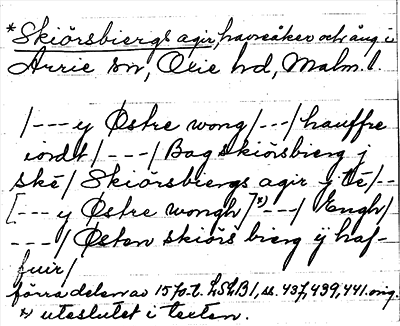 *Skiörsbiergs agir, havreåker och äng i
Arrie sn, Oxie hd, Malm. l.
/--- y Østre wong/---/ hauffre
iordt/---/ Bag skiörsbierg j
ské/ Skiörsbiergs agir y té/--
[--- y Østre wongh/]x)---/ Engh/
---/ Østen skiörs bierg ÿ haf-
fuir/
förra delen av 1570-t. LSLB1, ss. 437, 439, 441. orig.
x) uteslutet i texten.